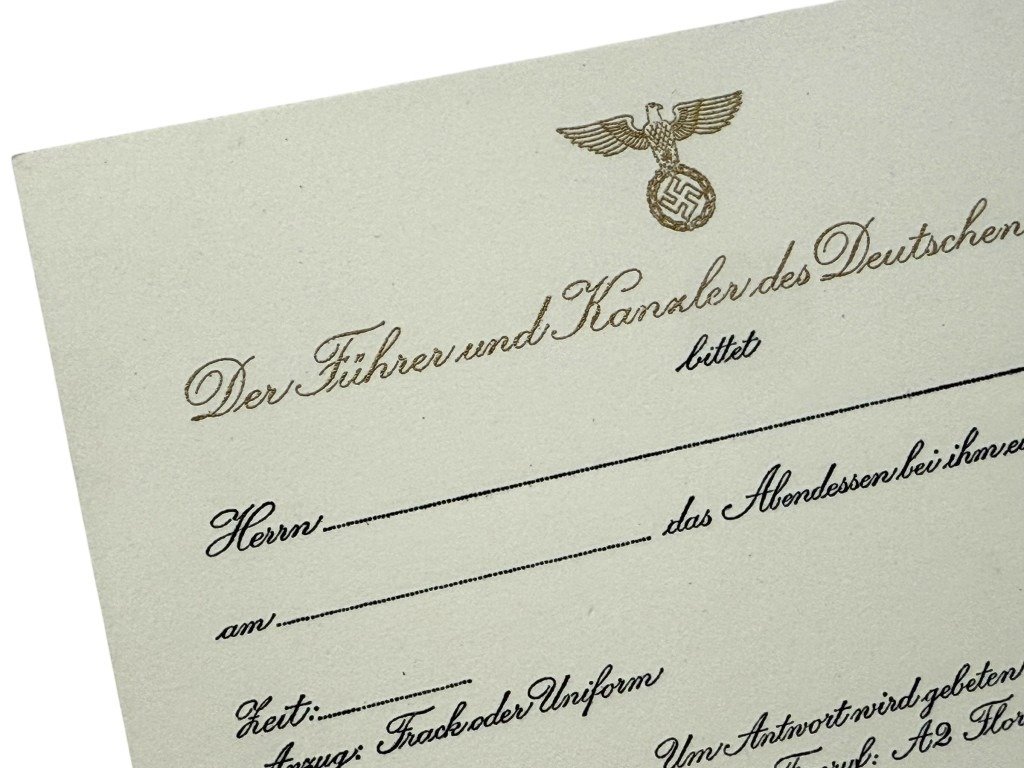 Der Führer und Kanzler des Deutschen
bittet
Herrn
am das Abendessen bei ihm
Zeit:
Anzug: Frack oder Uniform
Um Antwort wird gebeten
A2